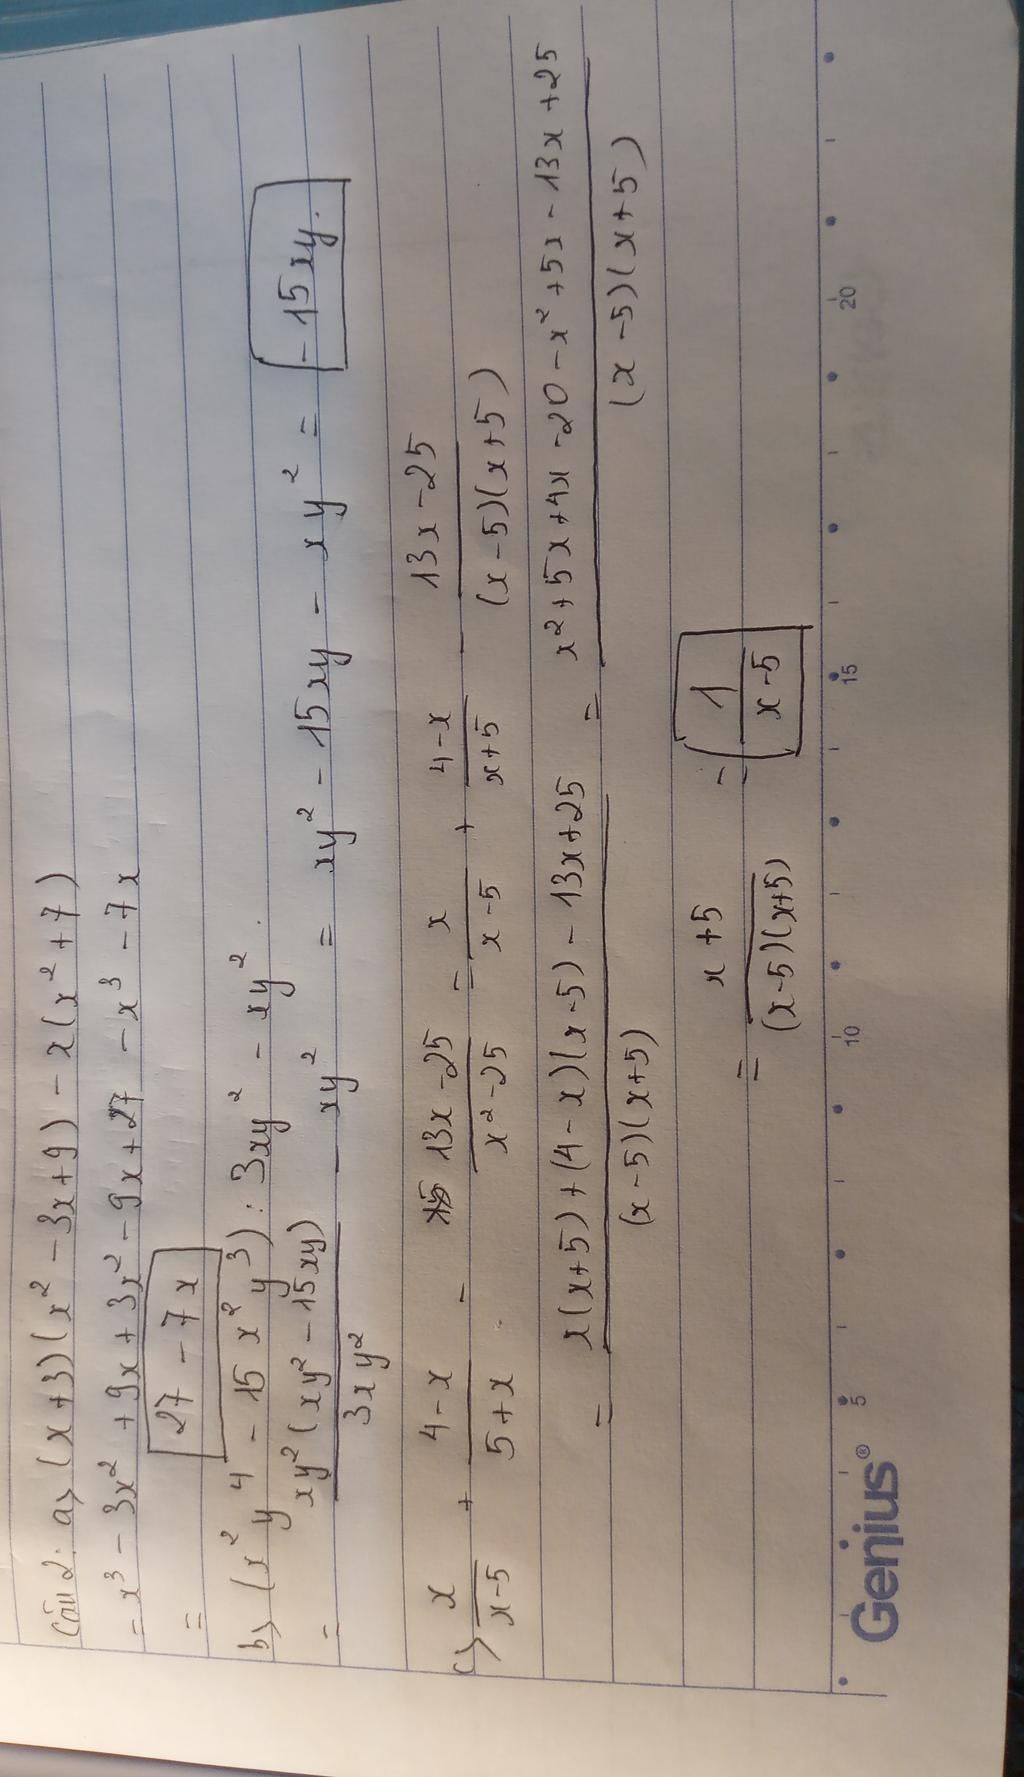 Câu 2: a> (x+3)(x² - 3x + 9) - x(x² + 7)
= x³ - 3x² + 9x + 3x² - 9x + 27 - x³ - 7x
= 27 - 7x
b> (x² y⁴ - 15 x² y³) : 3xy² - xy².
= xy² (xy² - 15xy) / 3xy² - xy² = xy² - 15xy - xy² = -15xy.
c> x / x-5 + 4-x / 5+x - 13x - 25 / x² - 25 = x / x-5 + 4-x / x+5 - 13x - 25 / (x-5)(x+5)
= x(x+5) + (4-x)(x-5) - 13x + 25 / (x-5)(x+5) = x² + 5x + 4x - 20 - x² + 5x - 13x + 25 / (x-5)(x+5)
= x+5 / (x-5)(x+5) = 1 / x-5
5 10 15 20
Genius®